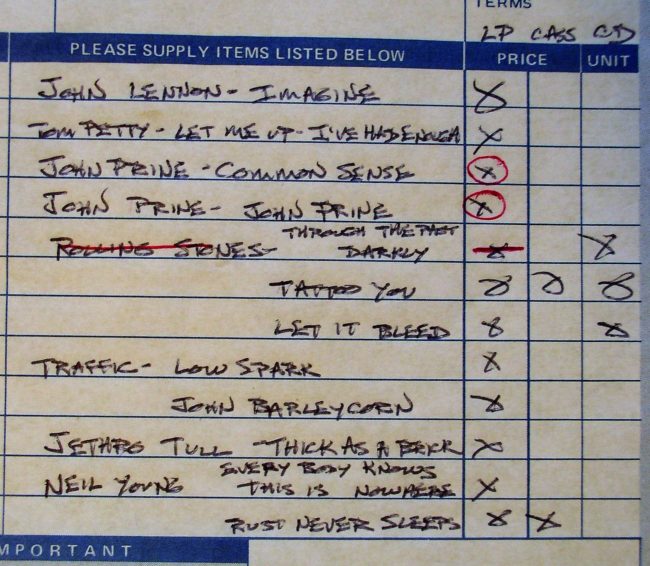 TERMS
LP CASS CD
PLEASE SUPPLY ITEMS LISTED BELOW PRICE UNIT
JOHN LENNON - IMAGINE X
TOM PETTY - LET ME UP - I'VE HAD ENOUGH X
JOHN PRINE - COMMON SENSE X
JOHN PRINE - JOHN PRINE X
ROLLING STONES - THROUGH THE PAST
DARKLY X X
TATTOO YOU X X X
LET IT BLEED X X
TRAFFIC - LOW SPARK X
JOHN BARLEYCORN X
JETHRO TULL - THICK AS A BRICK X
NEIL YOUNG EVERY BODY KNOWS
THIS IS NOWHERE X
RUST NEVER SLEEPS X X
MPORTANT